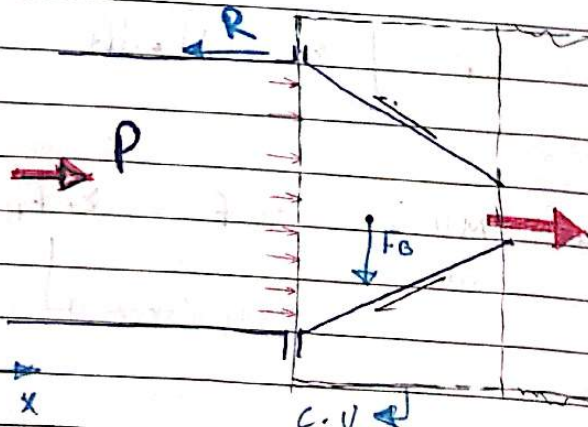 R
P
FB
x
C.V